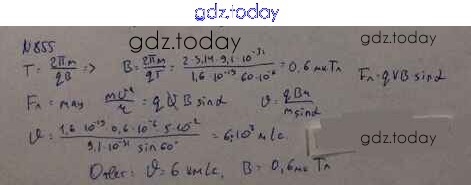 gdz.today
N855
gdz.today
T = 2πm/qB => B = 2πm/qT = 2·3,14·9,1·10^-31 / 1,6·10^-19·60·10^-6 = 0,6 мкТл Fл = qVB sinα
Fл = ma mv²/r = qVB sinα v = qBr/m sinα
v = 1,6·10^-19·0,6·10^-6·5·10^-2 / 9,1·10^-31 sin60° = 6·10³ м/с. gdz.today
Ответ: v = 6 км/с, B = 0,6 мкТл
gdz.today